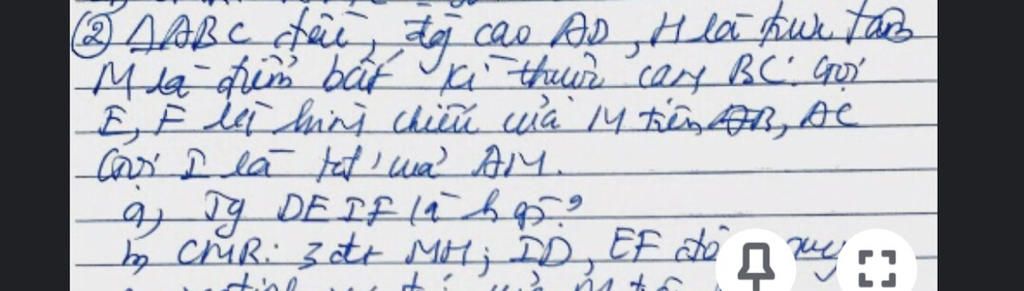 ② ΔABC đều, đg cao AD, H là trực tâm
M là điểm bất kì thuộc cạnh BC. Gọi
E, F là hình chiếu của M trên AB, AC
Gọi I là tđ' của AM.
a, Tg DEIF là h gì?
b, CMR: 3 đt MH; ID, EF đồng quy